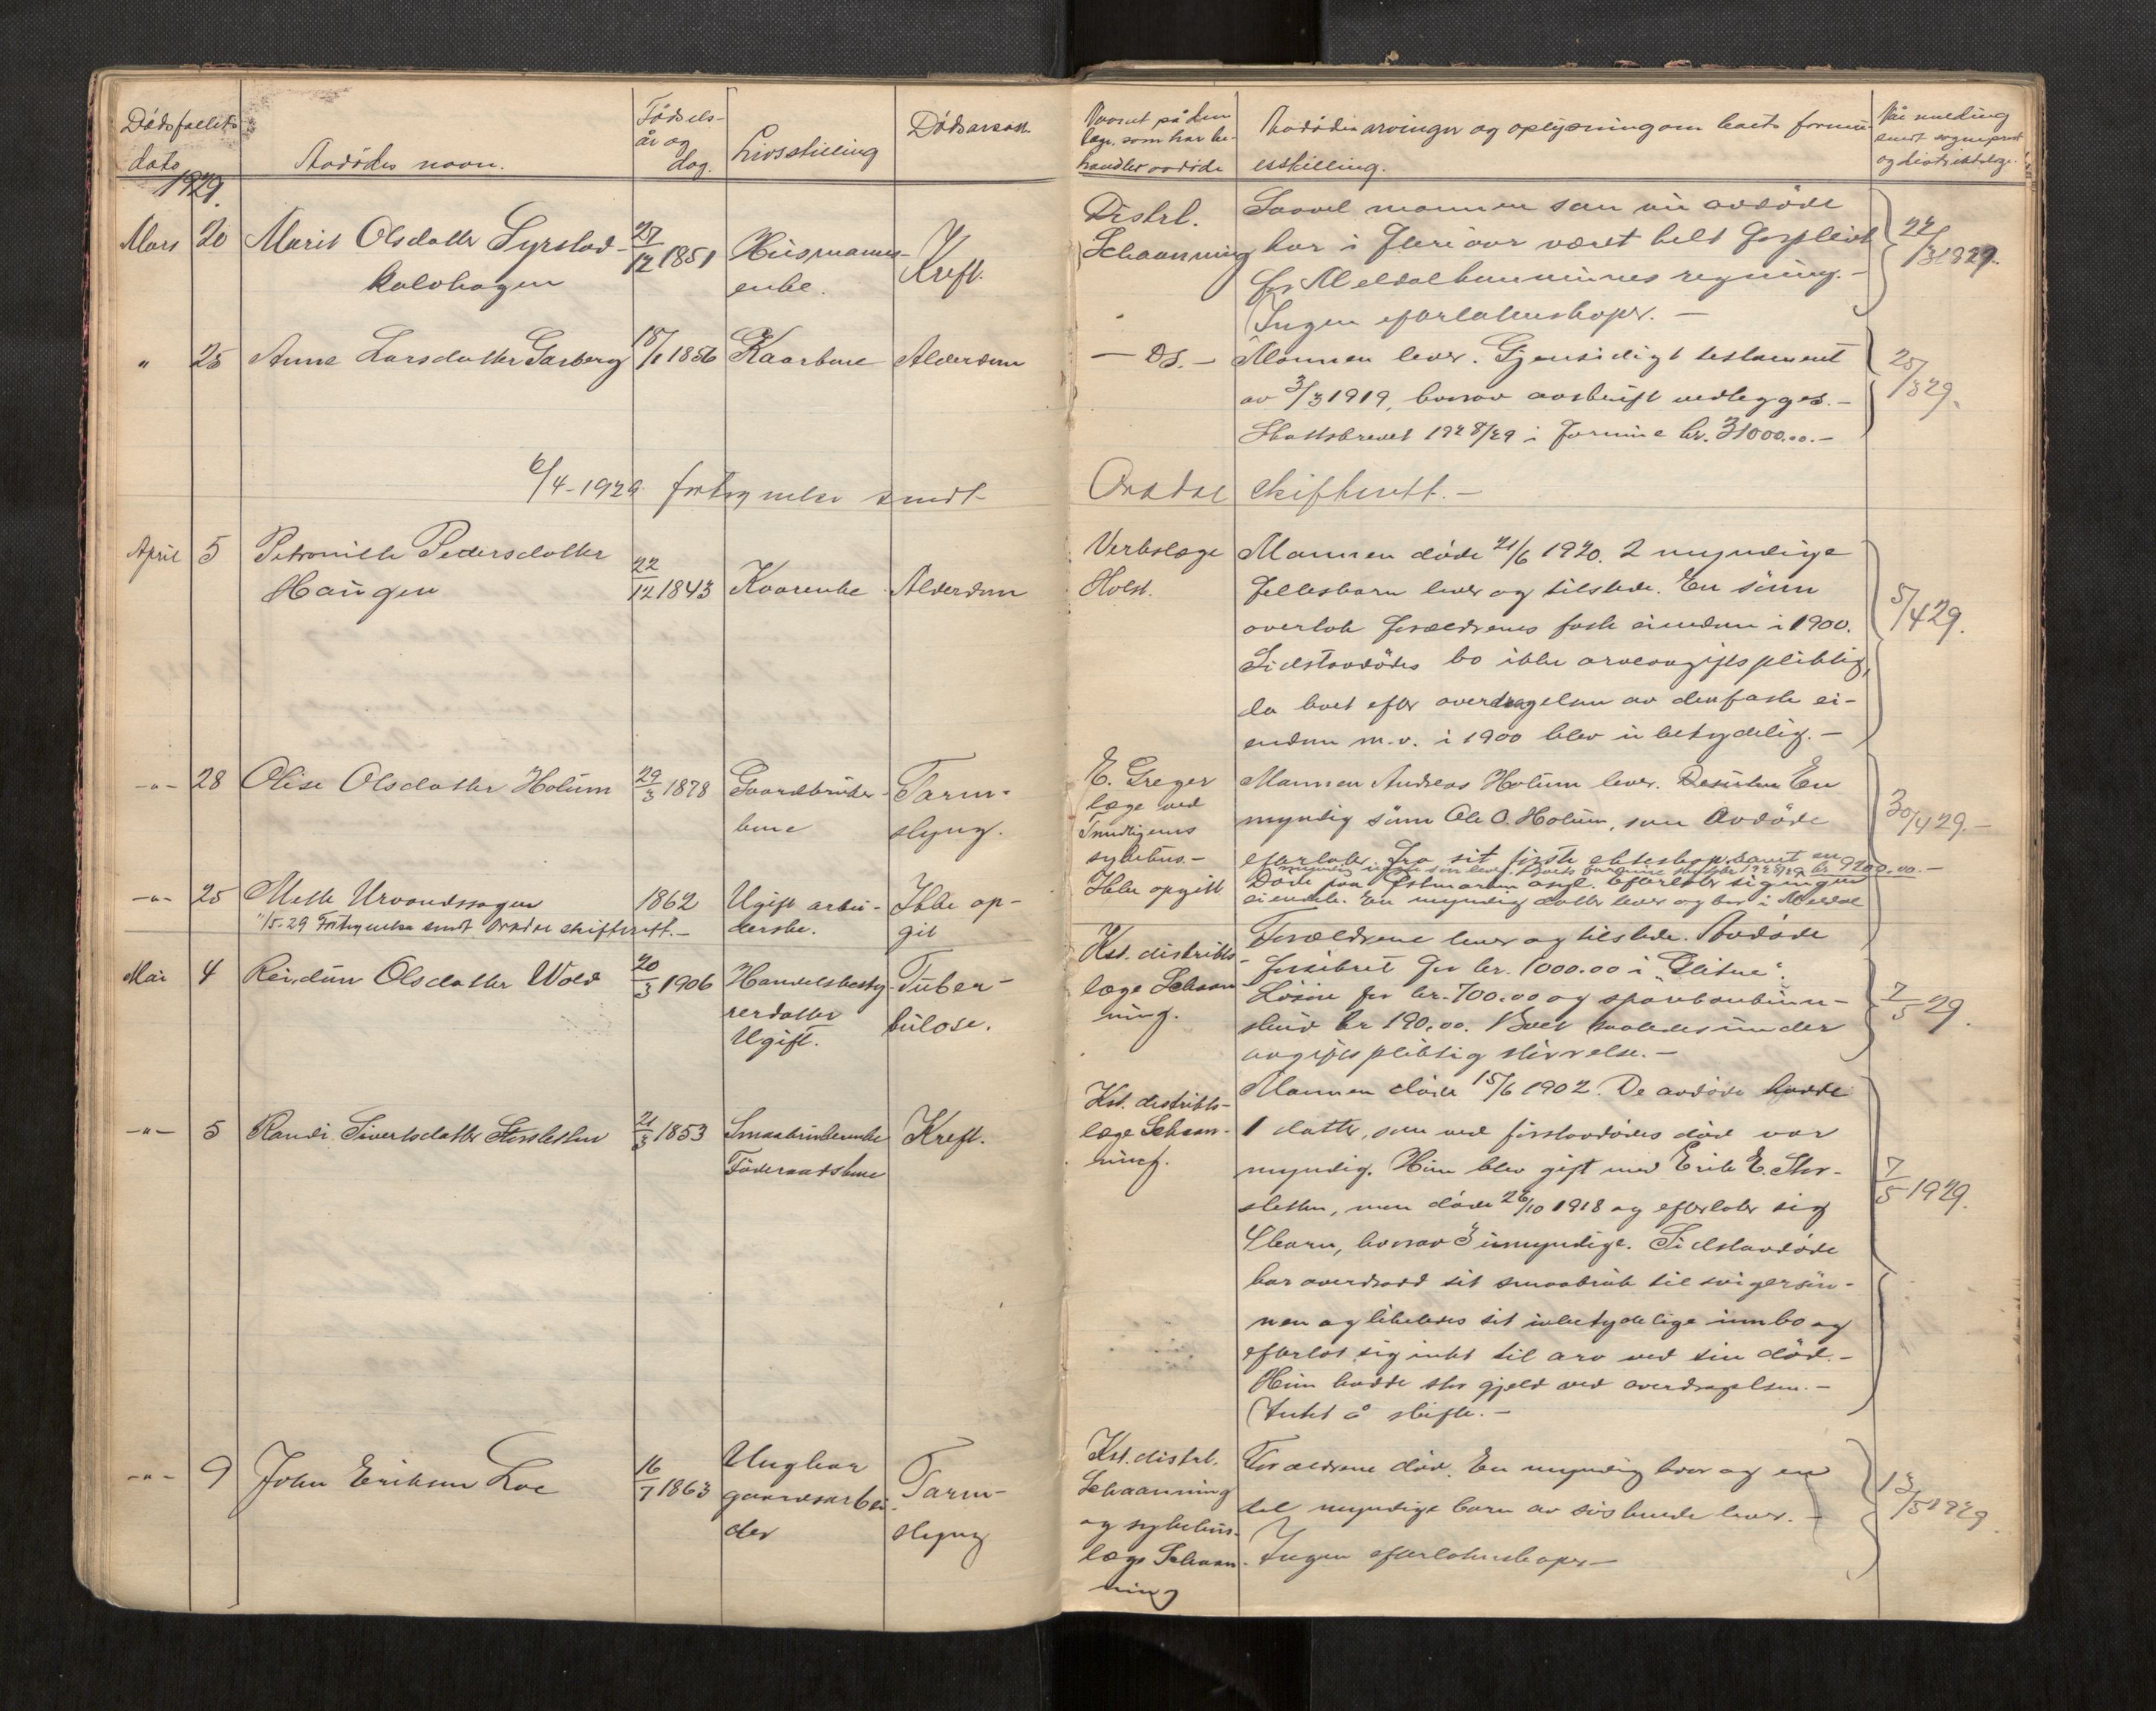 Dødsfallets
dato
1929.
Avdødes navn.
Fødsels-
år og
dag.
Livsstilling
Dødsårsak.
Navnet på den
læge som har be-
handlet avdøde
Avdødes arvinger og oplysning om boets formu-
esstilling.
Når melding
sendt sogneprest
og distriktslæge.
Mars 20 Marit Olsdatter Syrstad-
kalvhagen
27/12 1851
Husmanns-
enke.
Kreft.
Distrl.
Schaanning
Saavel mannen som nu avdøde
har i flere aar været helt forpleiet
for Meldal kommunes regning.-
Ingen efterlatenskaper. -
22/3 1929.
" 25 Anne Larsdatter Garberg
18/1 1856
Kaarkone
Alderdom
- Ds. -
Mannen lever. Gjensidigt testament
av 3/3 1919, hvorav avskrift vedlegges. -
Skattebrevet 1928/29 i formue kr. 31000.00. -
25/3 29.
6/4-1929 fortegnelse sendt Orkdal skifterett. -
April 5 Petronille Pedersdatter
Haugen
22/12 1843
Kaarenke
Alderdom
Verkslæge
Holst.
Mannen døde 21/6 1920. 2 myndige
fellesbarn lever og tilstede. En sønn
overtok forældrenes faste eiendom i 1900.
Sidstavdødes bo ikke arveavgiftspliktig,
da boet efter overdragelsen av den faste ei-
endom m.v. i 1900 blev ubetydelig. -
5/4 29.
-"- 28 Olise Olsdatter Holum
29/3 1878
Gaardbruker-
kone
Tarm-
slyng.
E. Greger
læge ved
sykehus. -
Mannen Andreas Holum lever. Desuten En
myndig sønn Ole O. Holum, som Avdøde
efterlater fra sit første ekteskap. Samt en
myndig lever. Boets formue 1928/29 kr 9200.00. -
30/4 29. -
-"- 25 Mette Urvandssagen
1862
Ugift arbei-
derske.
Ikke op-
git
Ikke opgitt
Døde paa asyl. Efterlater sig ingen
eiendele. En myndig datter lever og bor i Meldal
"/5-29 Fortegnelse sendt Orkdal skifterett. -
Mai 4 Reidun Olsdatter Wold
20/3 1906
Handelsbesty-
rerdatter
Ugift.
Tuber-
kulose.
Kst. distrikts-
læge Schaan-
ning.
Forældrene lever og tilstede. Avdøde
forsikret for kr. 1000.00 i "Glitne".
Løsøre for kr. 700.00 og sparebankinn-
skud kr 190.00. Boet saaledes under
avgiftspliktig størrelse. -
7/5 29.
-"- 5 Randi Sivertsdatter Storsletten
21/3 1853
Smaabrukerenke
Føderaadskone
Kreft.
Kst. distrikts-
læge Schaan-
ning.
Mannen døde 15/6 1902. De avdøde hadde
1 datter, som ved førstavdødes død var
myndig. Hun blev gift med Erik E. Stor-
sletten, men døde 26/10 1918 og efterlater sig
4 barn, hvorav 3 umyndige. Sidstavdøde
har overdradd sit smaabruk til svigersøn-
nen og likeledes sit ubetydelige innbo og
efterlot sig intet til arv ved sin død. -
Hun hadde stor gjeld ved overdragelsen. -
Intet å skifte. -
7/5 1929.
-"- 9 John Eriksen Loe
16/7 1863
Ungkar
gaardsarbei-
der
Tarm-
slyng
Kst. distrl.
Schaanning
og sykehus-
læge Schaan-
ning
Forældrene død. En myndig bror og en
del myndige barn av søskende lever. -
Ingen efterlatenskaper -
13/5 1929.